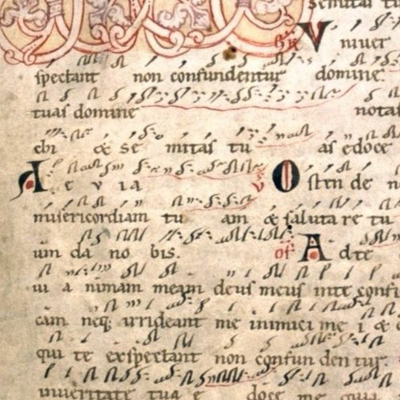 semitas tu
GR V niver
spectant non confundentur domine
tuas domine notas
chi & se mitas tu as edoce
A e v i a V Osten de n
misericordiam tu am & saluta re tu
um da no bis. of Ad te
ui a nimam meam deus meus in te confi
eam neq; irrideant me inimici me i & e
qui te exspectant non confun den tur.
inueritate tua & doce me quia